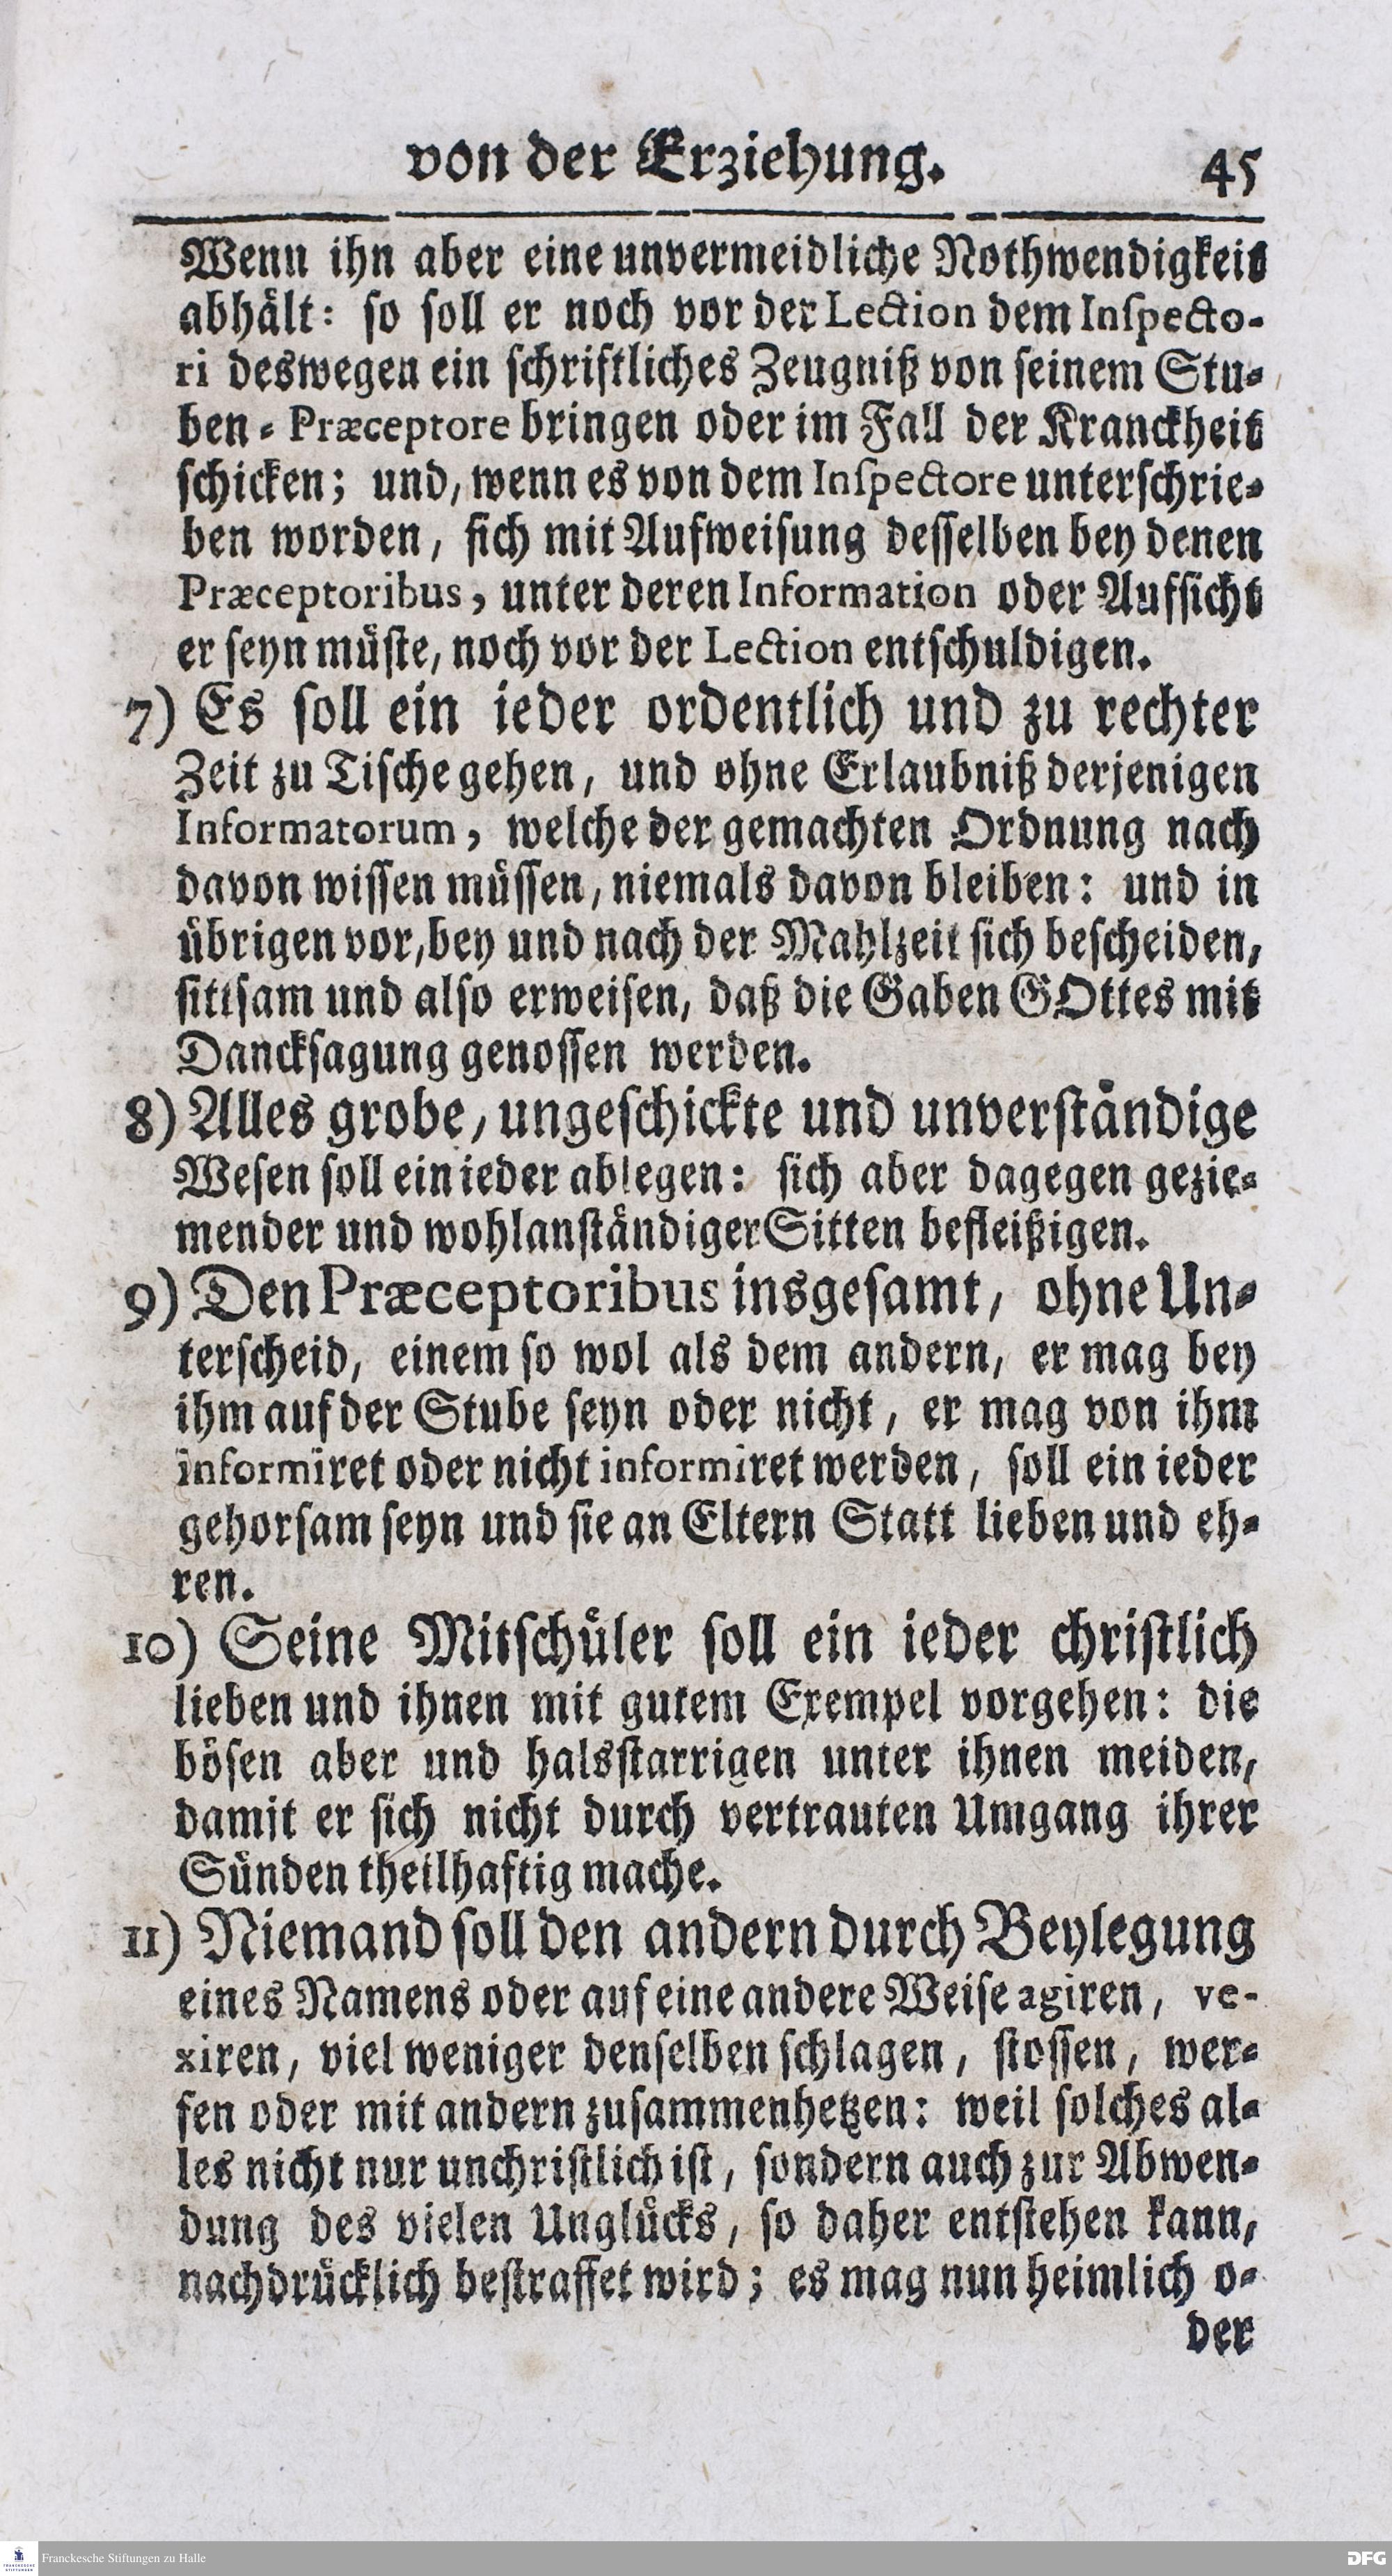 von der Erziehung. 45
Wenn ihn aber eine unvermeidliche Nothwendigkeit
abhält: so soll er noch vor der Lection dem Inspecto-
ri deswegen ein schriftliches Zeugniß von seinem Stu-
ben-Præceptore bringen oder im Fall der Kranckheit
schicken; und, wenn es von dem Inspectore unterschrie-
ben worden, sich mit Aufweisung desselben bey denen
Præceptoribus, unter deren Information oder Aufsicht
er seyn müste, noch vor der Lection entschuldigen.
7) Es soll ein ieder ordentlich und zu rechter
Zeit zu Tische gehen, und ohne Erlaubniß derjenigen
Informatorum, welche der gemachten Ordnung nach
davon wissen müssen, niemals davon bleiben: und in
übrigen vor, bey und nach der Mahlzeit sich bescheiden,
sittsam und also erweisen, daß die Gaben GOttes mit
Dancksagung genossen werden.
8) Alles grobe, ungeschickte und unverständige
Wesen soll ein ieder ablegen: sich aber dagegen gezie-
mender und wohlanständiger Sitten befleißigen.
9) Den Præceptoribus insgesamt, ohne Un-
terscheid, einem so wol als dem andern, er mag bey
ihm auf der Stube seyn oder nicht, er mag von ihm
informiret oder nicht informiret werden, soll ein ieder
gehorsam seyn und sie an Eltern Statt lieben und eh-
ren.
10) Seine Mitschüler soll ein ieder christlich
lieben und ihnen mit gutem Exempel vorgehen: die
bösen aber und halsstarrigen unter ihnen meiden,
damit er sich nicht durch vertrauten Umgang ihrer
Sünden theilhaftig mache.
11) Niemand soll den andern durch Beylegung
eines Namens oder auf eine andere Weise agiren, ve-
xiren, viel weniger denselben schlagen, stossen, wer-
fen oder mit andern zusammenhetzen: weil solches al-
les nicht nur unchristlich ist, sondern auch zur Abwen-
dung des vielen Unglücks, so daher entstehen kann,
nachdrücklich bestraffet wird; es mag nun heimlich o-
der
FRANCKESCHE
STIFTUNGEN
Franckesche Stiftungen zu Halle
DFG